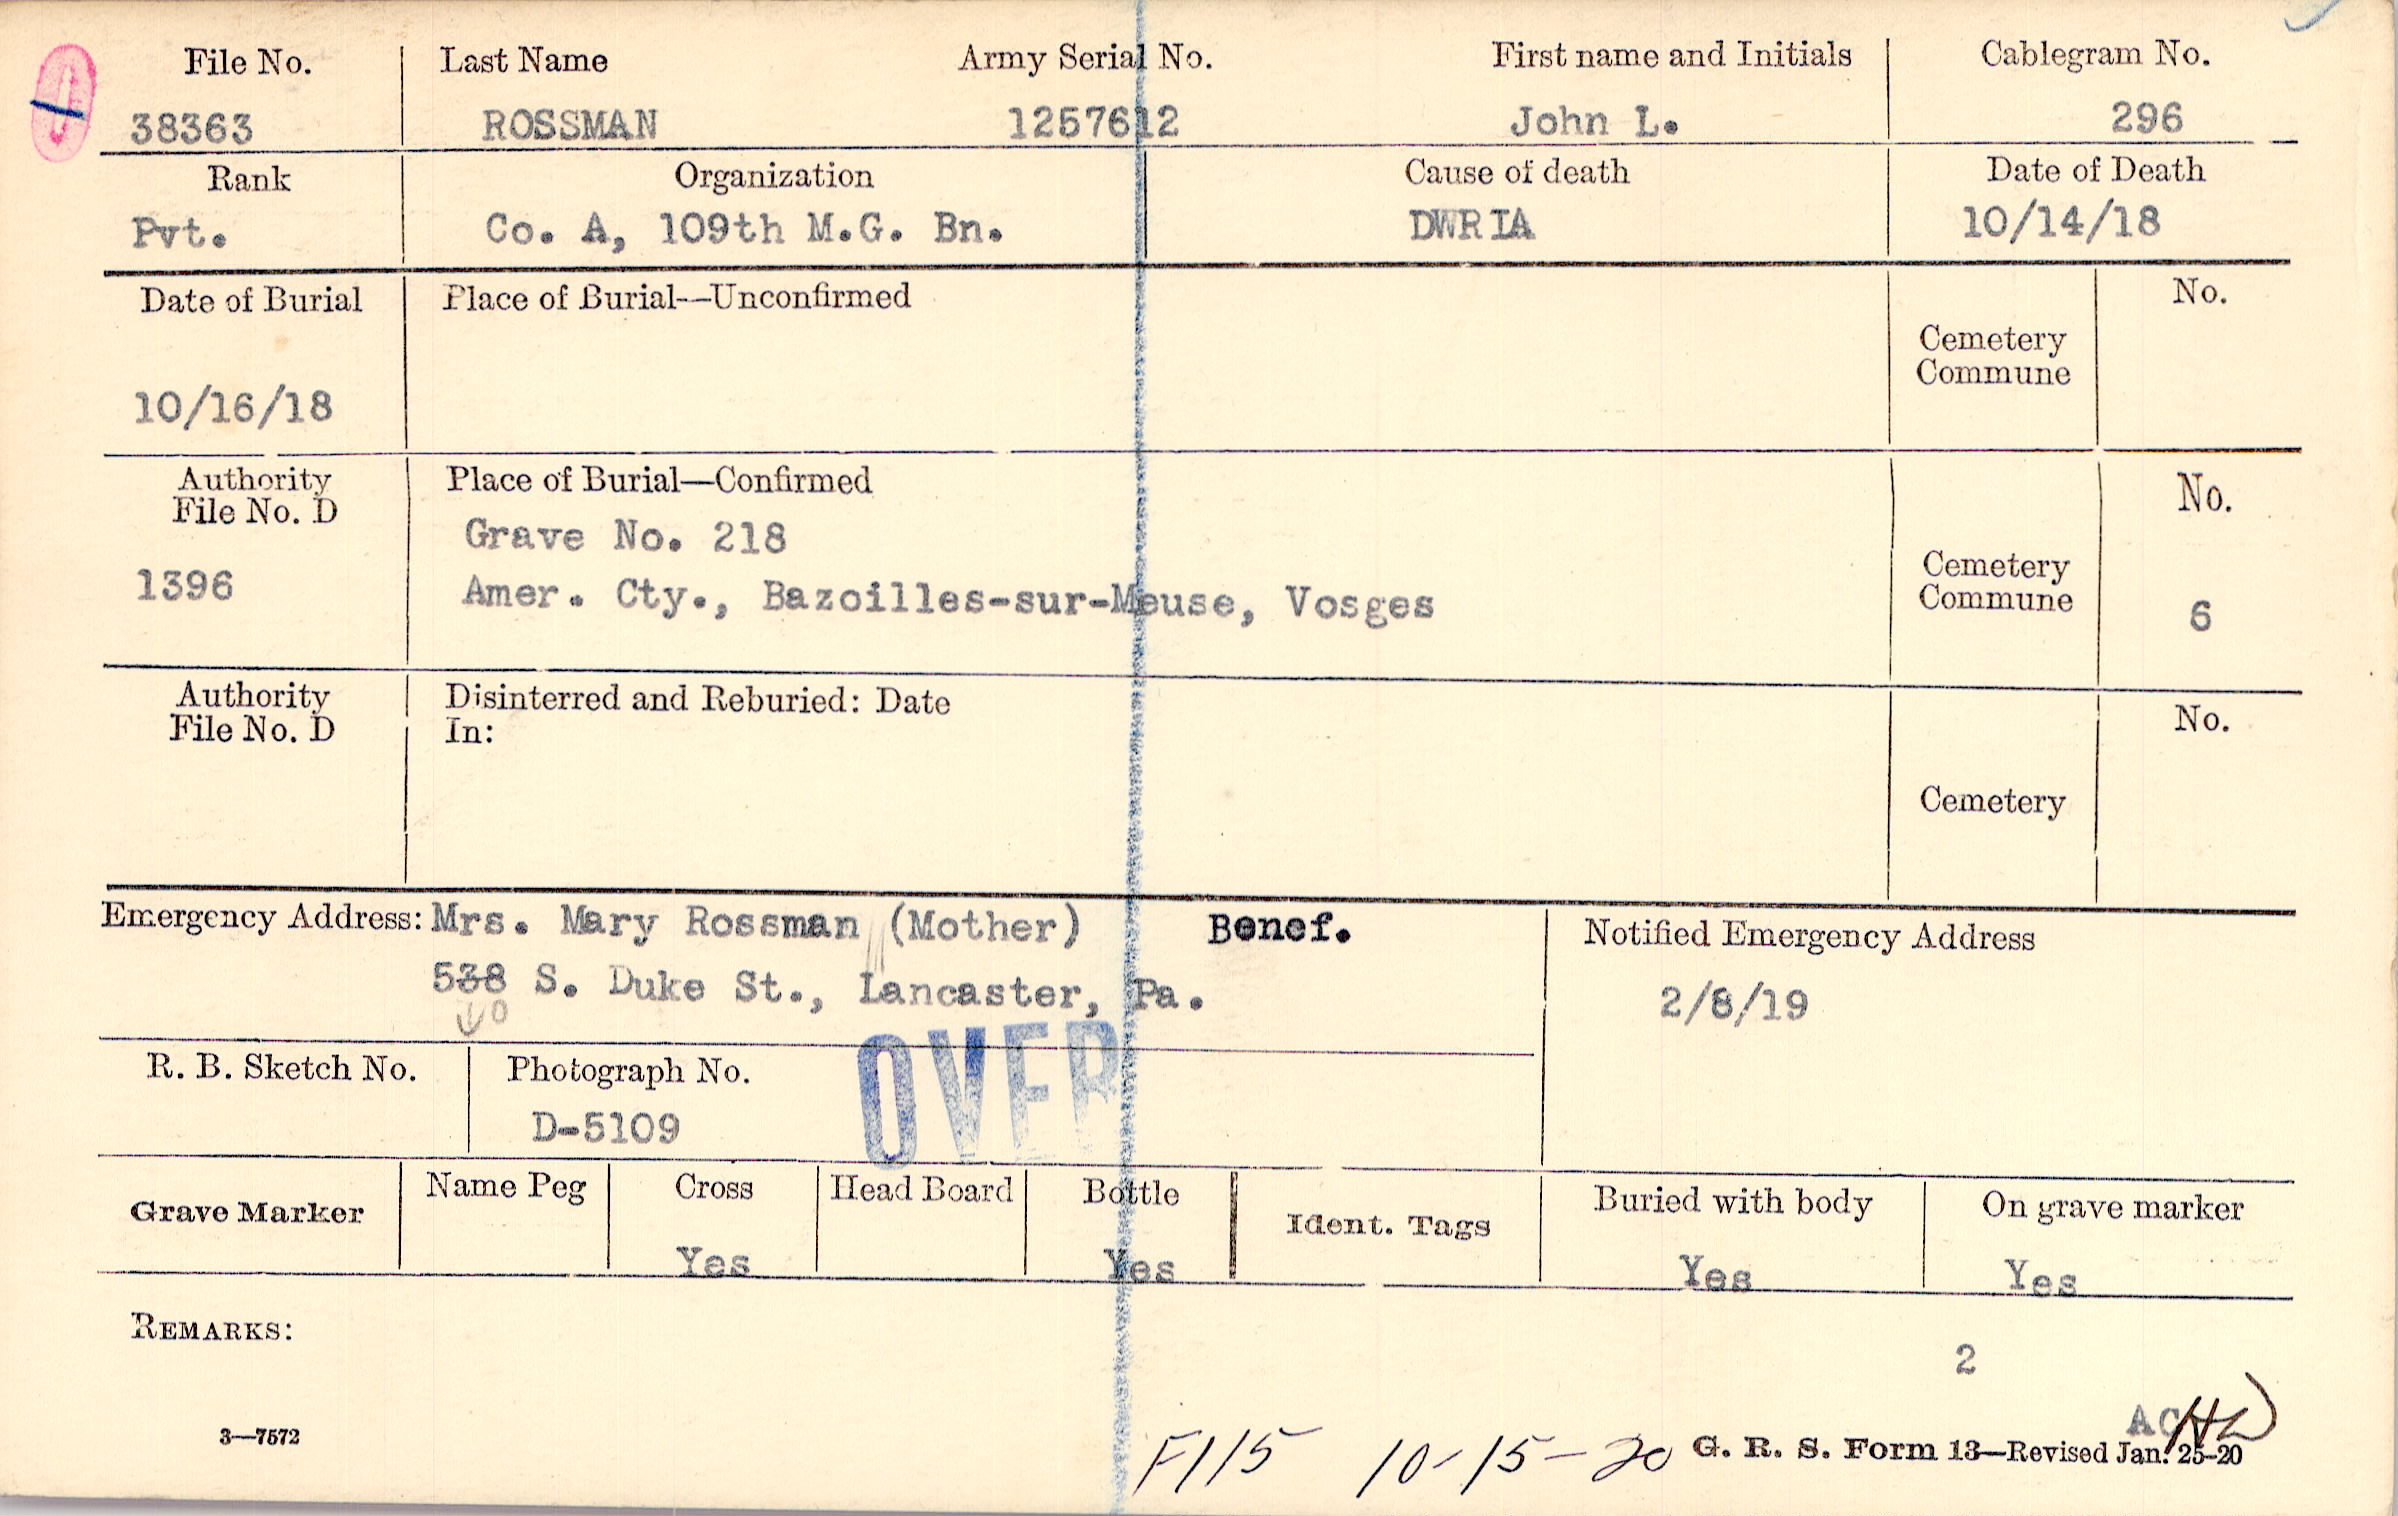 File No. Last Name Army Serial No. First name and Initials Cablegram No.
38363 ROSSMAN 1257612 John L. 296
Rank Organization Cause of death Date of Death
Pvt. Co. A, 109th M.G. Bn. DWRIA 10/14/18
Date of Burial Place of Burial--Unconfirmed No.
Cemetery
Commune
10/16/18
Authority Place of Burial—Confirmed No.
File No. D
Grave No. 218
1396 Amer. Cty., Bazoilles-sur-Meuse, Vosges
Cemetery
Commune 6
Authority Disinterred and Reburied: Date No.
File No. D In:
Cemetery
Emergency Address: Mrs. Mary Rossman (Mother) Benef. Notified Emergency Address
538 S. Duke St., Lancaster, Pa. 2/8/19
R. B. Sketch No. Photograph No. OVER
D-5109
Grave Marker Name Peg Cross Head Board Bottle Ident. Tags Buried with body On grave marker
Yes Yes Yes Yes
REMARKS:
2
3—7572 F115 10-15-20 G. R. S. Form 13—Revised Jan. 25-20